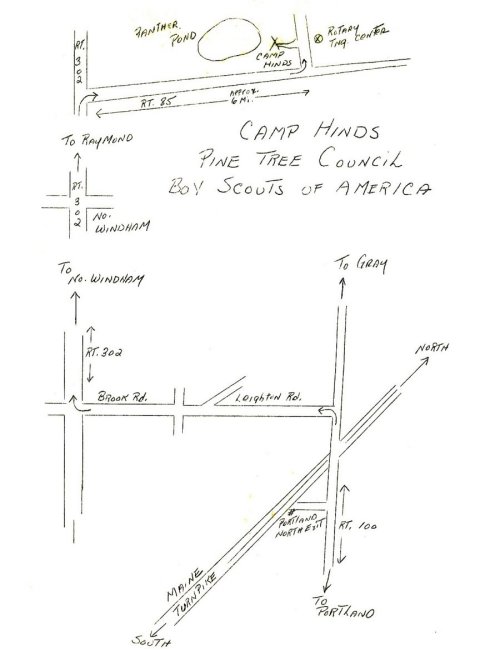 PANTHER
POND
ROTARY
TNG. CENTER
CAMP
HINDS
RT.
302
RT. 85
APPROX.
6 MI.
TO RAYMOND
CAMP HINDS
PINE TREE COUNCIL
BOY SCOUTS OF AMERICA
RT.
302
NO.
WINDHAM
TO
NO. WINDHAM
TO GRAY
NORTH
RT. 302
BROOK Rd.
LEIGHTON Rd.
PORTLAND
NORTH EXIT
RT. 100
MAINE
TURNPIKE
TO
PORTLAND
SOUTH